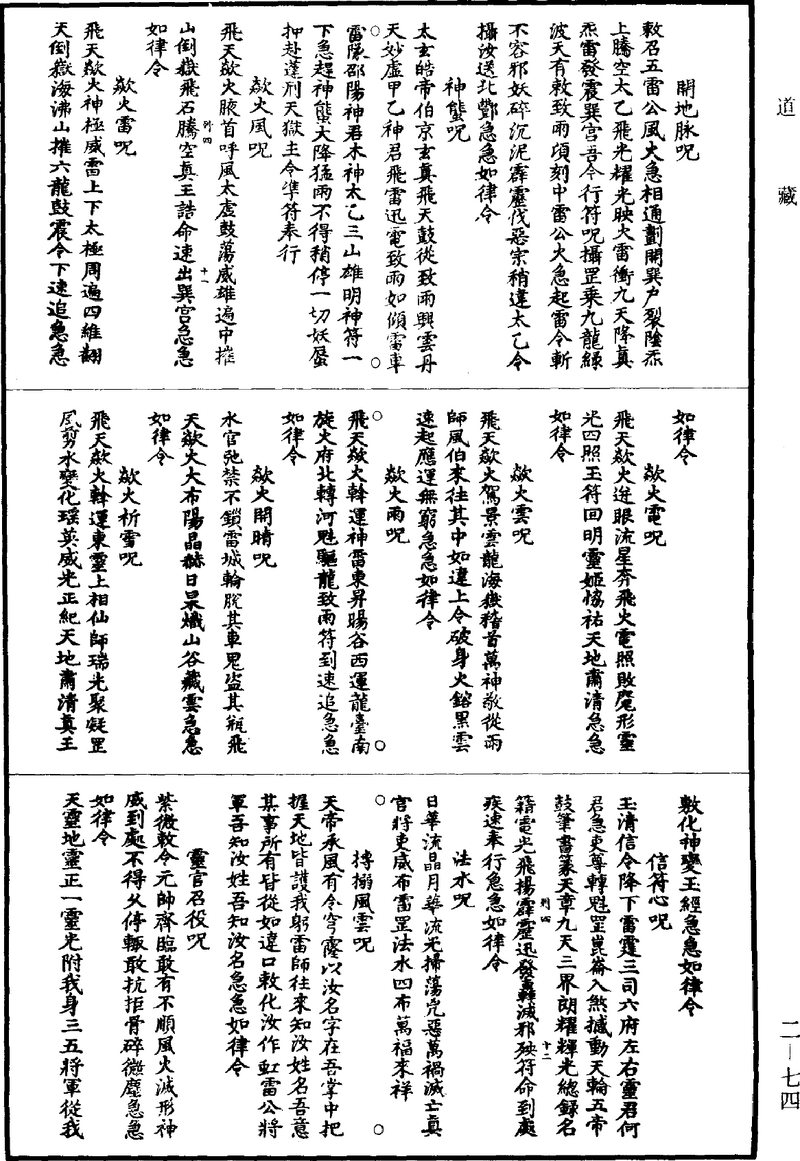 道藏
開地脉呪
敕召五雷公風火急相通劃開巽戶裂陰炁
上騰空太乙飛光耀光映火雷衝九天降真
炁雷發震巽宮吾今行符呪攝罡乘九龍綠
波天有敕致雨頃刻中雷公火急起雷令斬
不容邪妖碎沉泥霹靂伐惡宗稍違太乙令
攝汝送北酆急急如律令
神熊呪
太玄皓帝伯京玄真飛天鼓從致雨興雲丹
天妙虛甲乙神君飛雷迅電致雨如傾雷車
雷隊邵陽神君木神太乙三山雄明神符一
下急趕神熊大降猛雨不得稍停一切妖蜃
押赴蓬刑天獄主令準符奉行
歘火風呪
飛天歘火腋首呼風太虛鼓蕩威雄遍中摧
山倒嶽飛石騰空真王誥命速出巽宮急急
列四 十一
如律令
歘火雷呪
飛天歘火神極威雷上下太極周遍四維翻
天倒嶽海沸山摧六龍鼓震令下速追急急
如律令
歘火電呪
飛天歘火逆眼流星奔飛火電照敗魔形靈
光四照玉符回明靈姬恊祐天地肅清急急
如律令
歘火雲呪
飛天歘火駕景雲龍海嶽稽首萬神敬從雨
師風伯來往其中如違上令破身火鎔黑雲
速起應運無窮急急如律令
歘火雨呪
飛天歘火斡運神雷東昇暘谷西運龍臺南
旋火府北轉河魁驅龍致雨符到速追急急
如律令
歘火開睛呪
水官弛禁不鎖雷城輪脫其車鬼盜其瓶飛
天歘火大布陽晶赫日杲熾山谷藏雲急急
如律令
歘火祈雪呪
飛天歘火斡運東靈上相仙師瑞光聚凝罡
風剪水變化瑤英威光正紀天地肅清真王
敷化神變玉經急急如律令
信符心呪
玉清信令降下雷霆三司六府左右靈君何
君急吏尊轉魁罡崑崙入煞撼動天輪五帝
鼓筆書篆天章九天三界朗耀輝光總錄名
籍電光飛揚霹靂迅發轟滅邪殃符命到處
列四 十二
疾速奉行急急如律令
法水呪
日華流晶月華流光掃蕩兇惡萬禍滅亡真
官將吏威布雷罡法水四布萬福來祥
摶搦風雲呪
天帝承風有令穹窿以汝名字在吾掌中把
握天地皆護我躬雷師往來知汝姓名吾意
其事所有皆從如違口敕化汝作虹雷公將
軍吾知汝姓吾知汝名急急如律令
靈官召役呪
紫微敕令元帥齊臨敢有不順風火滅形神
威到處不得久停輒敢抗拒骨碎微塵急急
如律令
天靈地靈正一靈光附我身三五將軍從我
二一七四